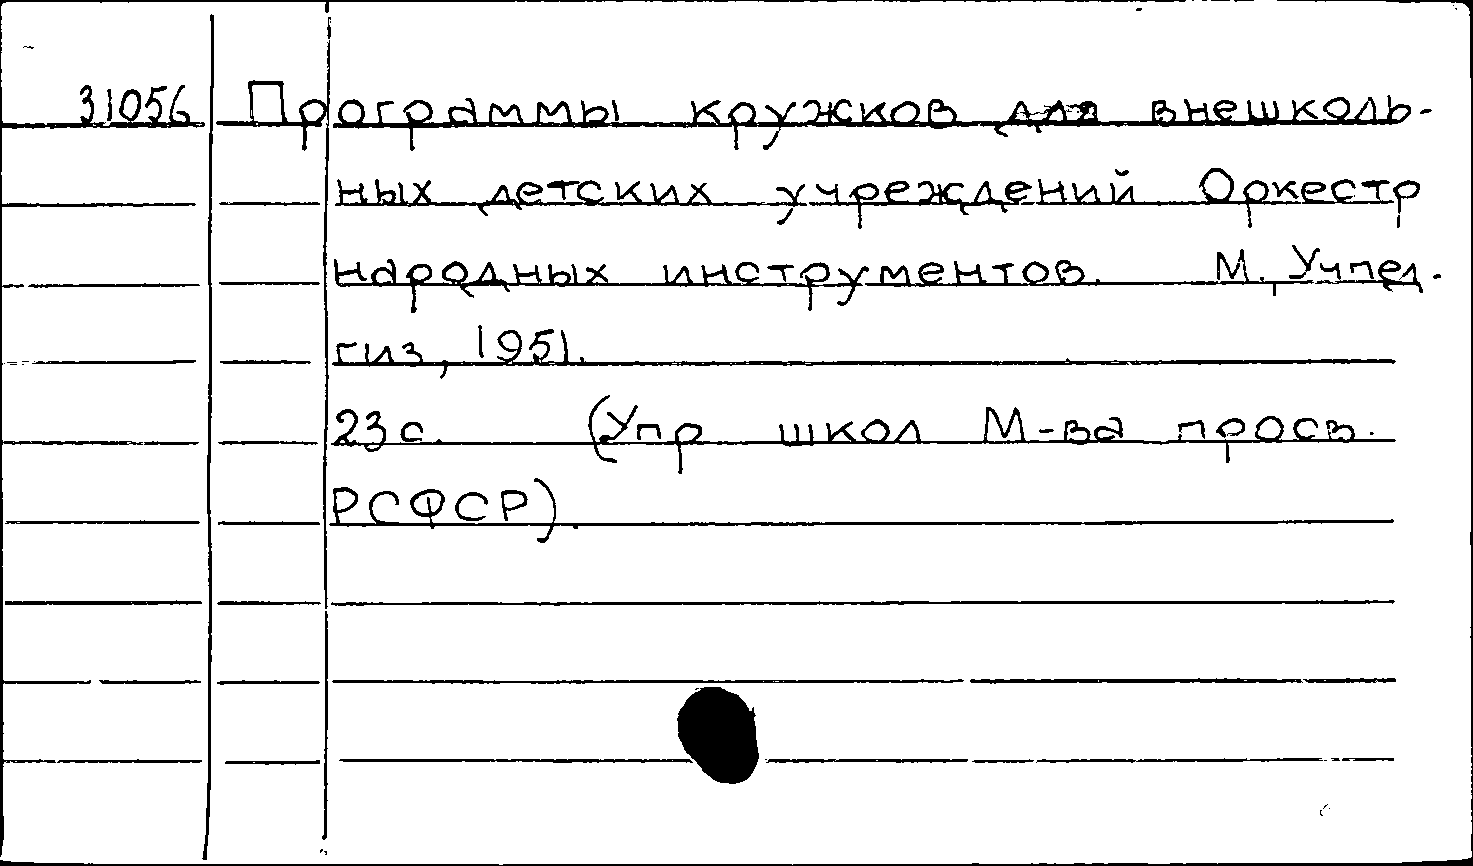 31056 Программы кружков для внешколь-
ных детских учреждений. Оркестр
народных инструментов. М., Учпед-
гиз, 1951.
23 с. (Упр школ М-ва просв.
РСФСР).